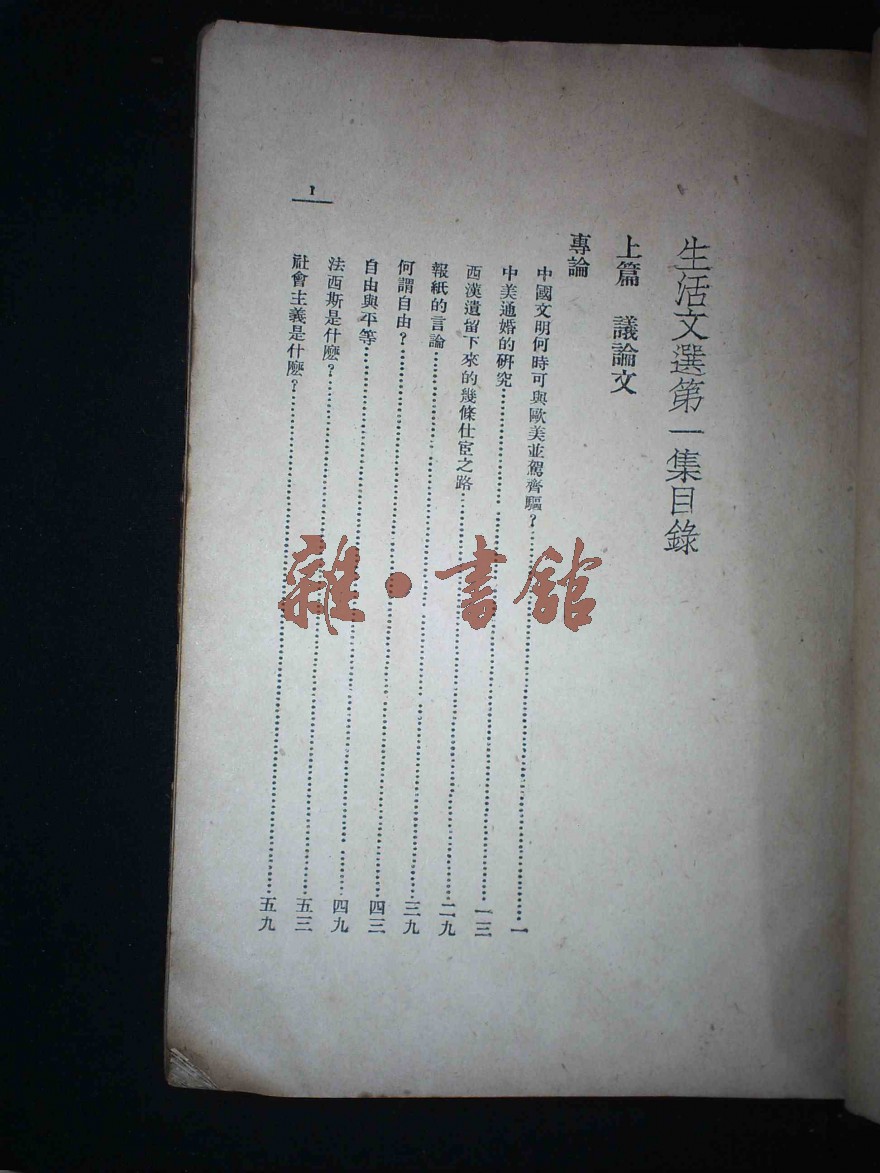 生活文選第一集目錄
上篇 議論文
專論
中國文明何時可與歐美並駕齊驅？……一
中美通婚的研究……一三
西漢遺留下來的幾條仕宦之路……二九
報紙的言論……三九
何謂自由？……四三
自由與平等……四九
法西斯是什麽？……五三
社會主義是什麽？……五九
1
雜·書館